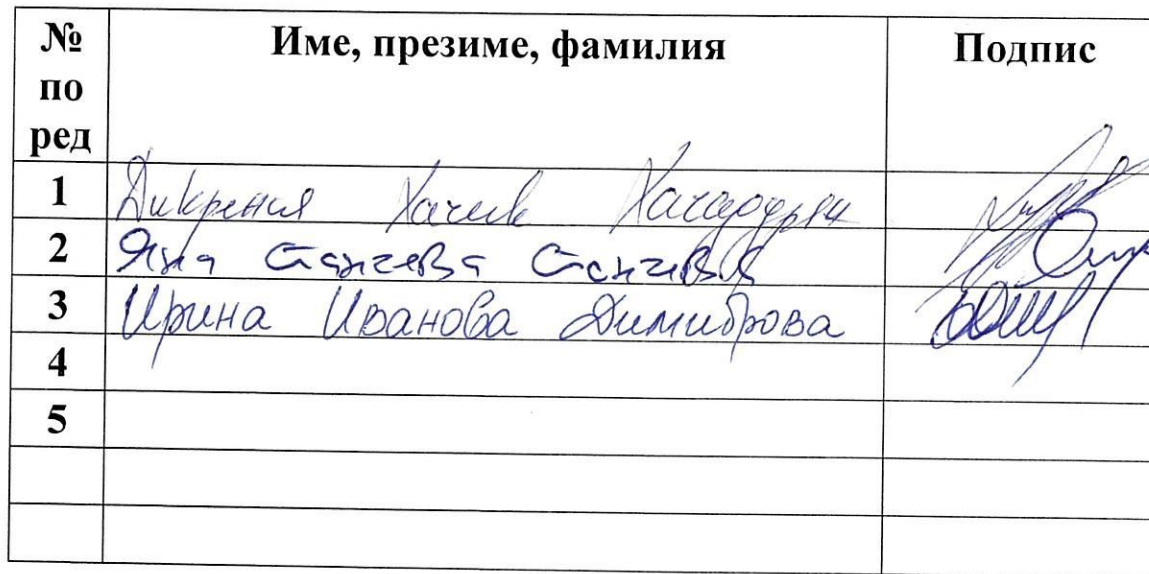 № по ред Име, презиме, фамилия Подпис
1 Дикрения Хачик Хачадурян
2 Яна Станчева Станчева
3 Ирина Иванова Димитрова
4
5